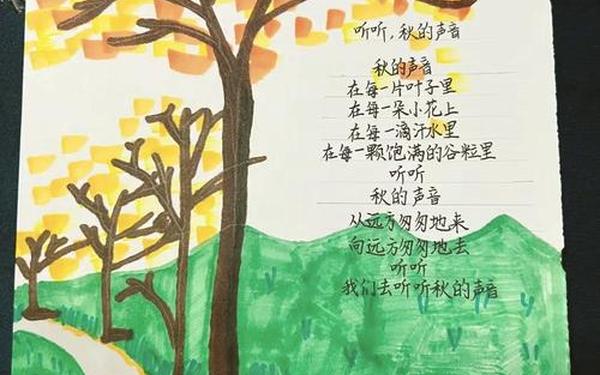 听听,秋的声音
秋的声音
在每一片叶子里
在每一朵小花上
在每一滴汗水里
在每一颗饱满的谷粒里
听听
秋的声音
从远方匆匆地来
向远方匆匆地去
听听
我们去听听秋的声音